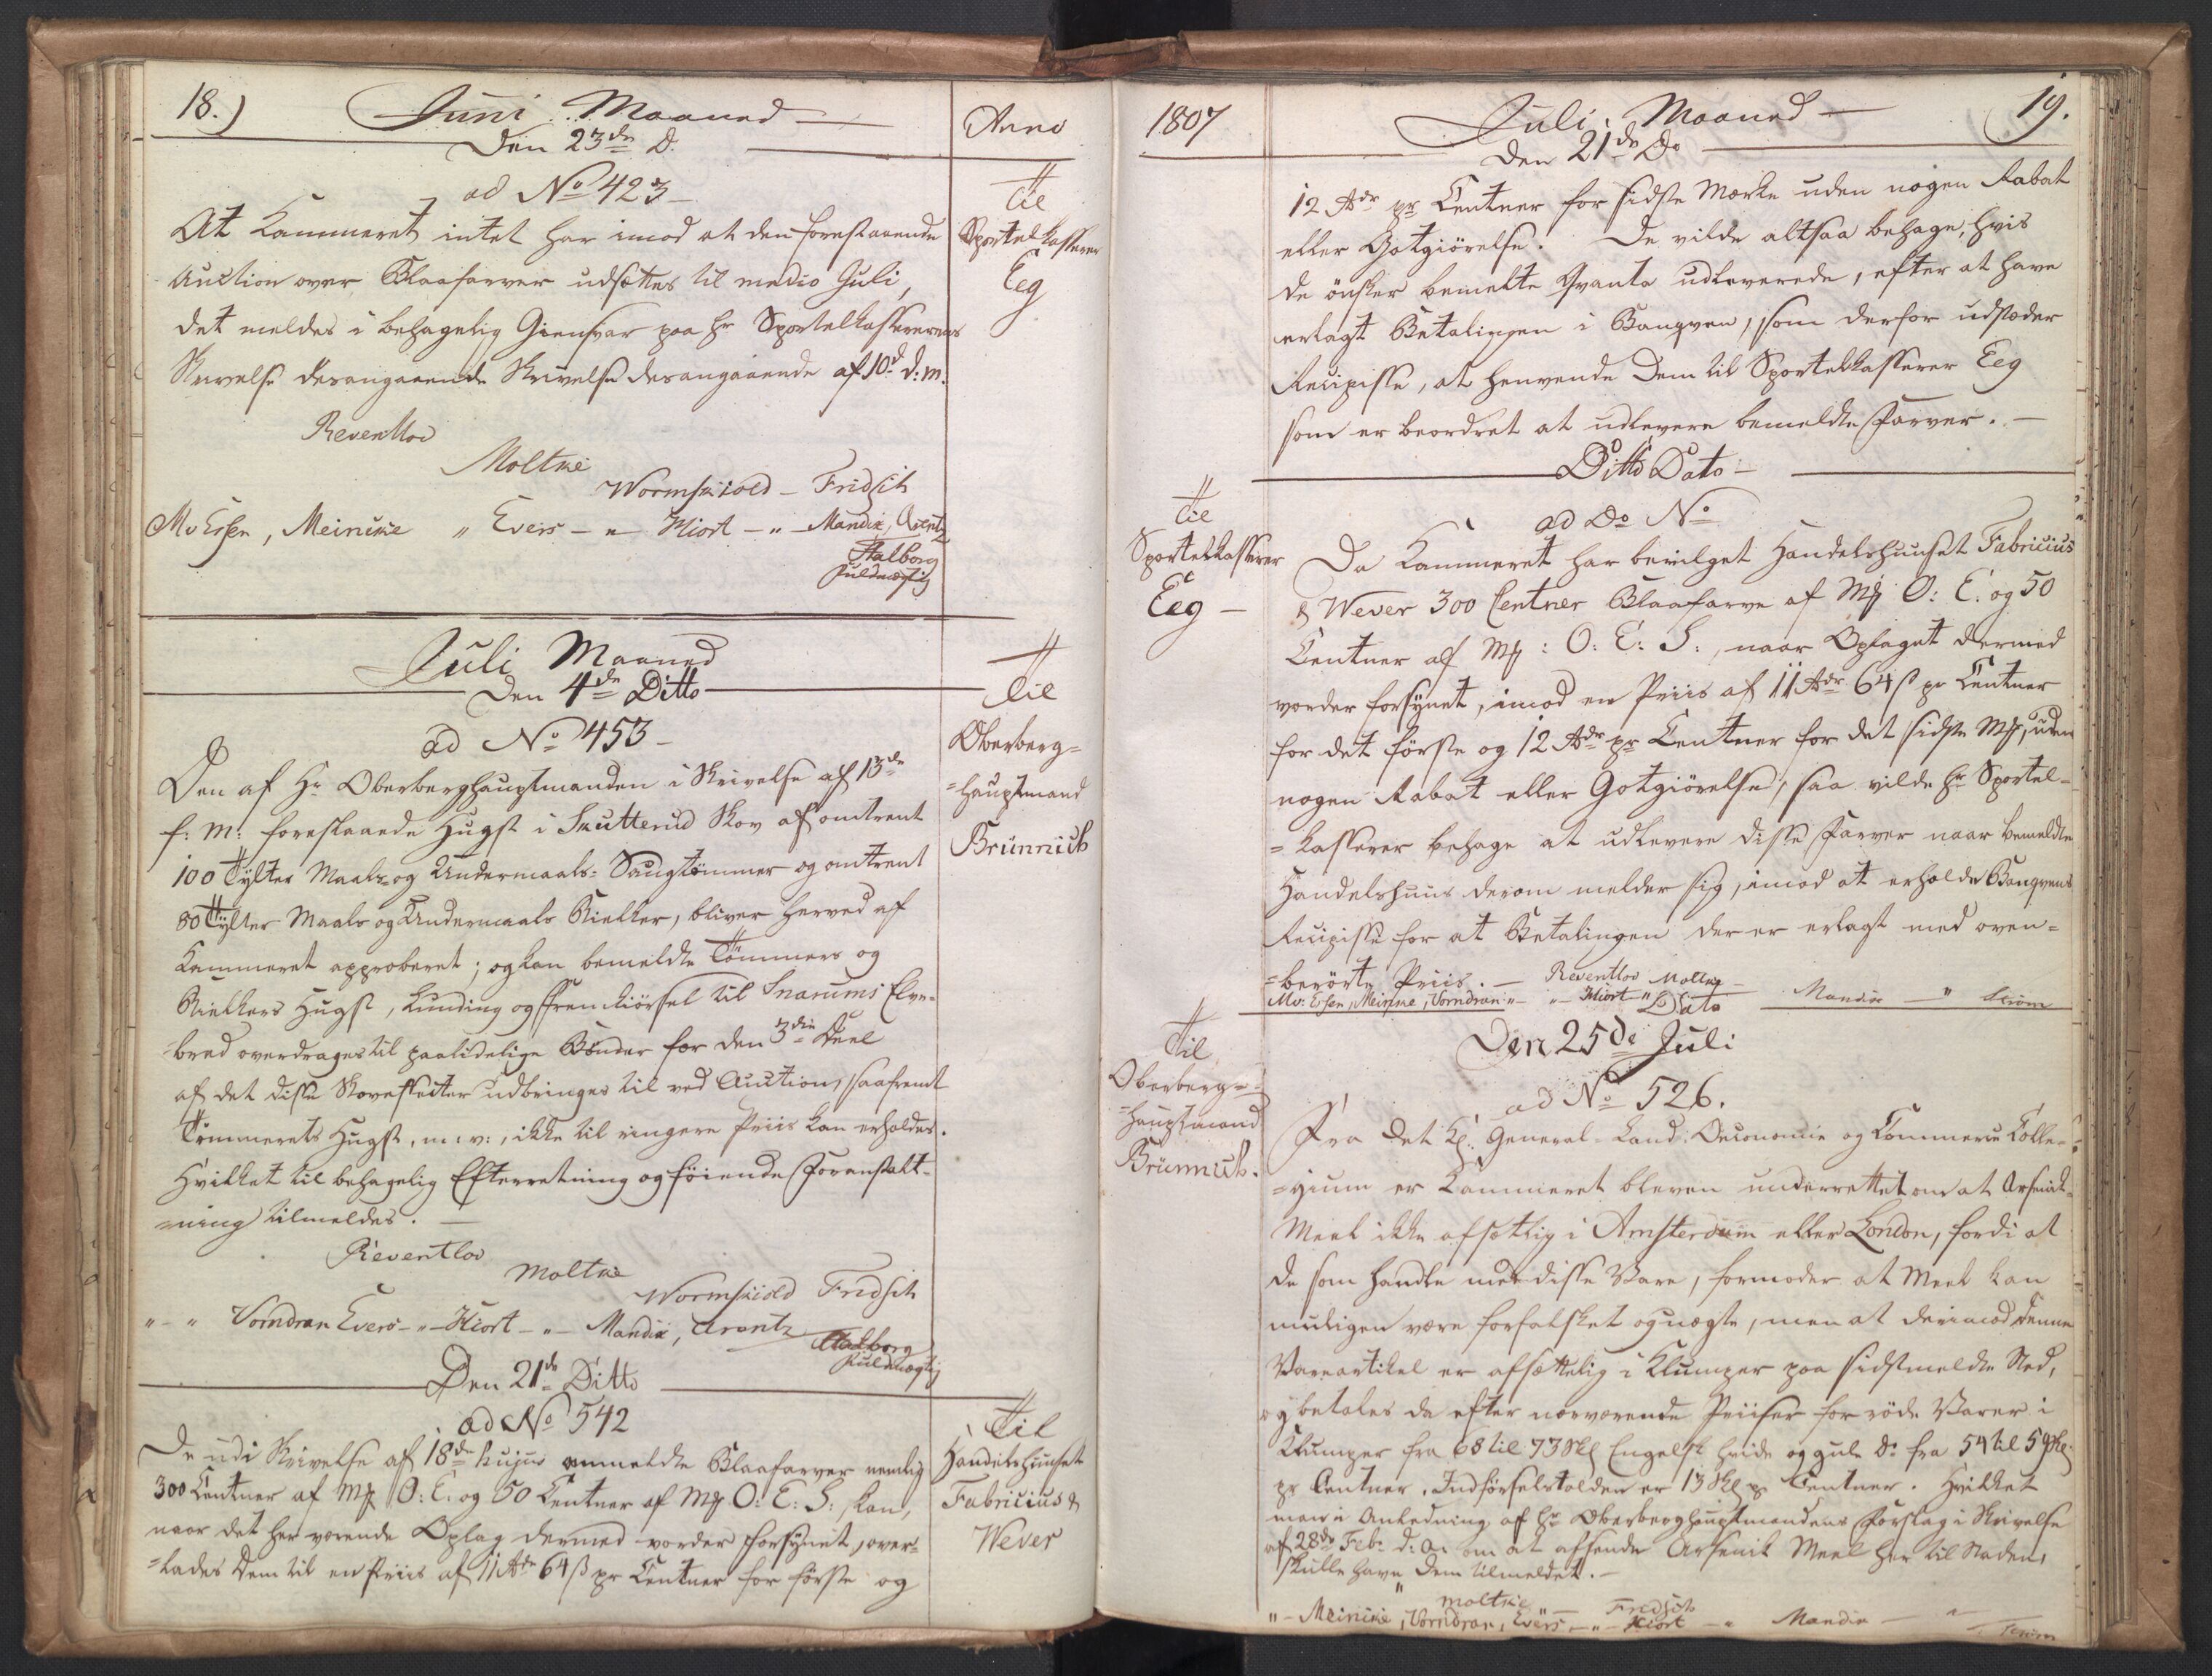 18.) Juni Maaned
Anno
Den 23de D.
ad No 423
Til
Sportelkasserer
Eeg
At Kammeret intet har imod at den forestaaende
Auction over Blaafarver udsettes til medio Juli,
det meldes i behagelig Giensvar paa Hr Sportelkassererens
Skrivelse desangaaende Skrivelse desangaaende af 10d d: m.
Reventlov
Moltke
Wormskiold - Fridsch
MvEssen, Meincke " Evers - " - Hiort - " - Mandix, Arentz
Aalborg
fuldmægtig
Juli Maaned
Den 4de Ditto
ad No 453
Til
Oberberg=
=hauptmand
Brünnich
Den af Hr Oberberghauptmanden i Skrivelse af 13de
f: m: foreslaaede Hugst i Skutterud Skov af omtrent
100 Tylter Maals- og Undermaals- Saugtømmer og omtrent
80 Tylter Maals og Undermaals Bielker, bliver herved af
Kammeret approberet; og kan bemeldte Tømmers og
Bielkers Hugst, Lunding og Fremkiörsel til Snarums Elve-
bred overdrages til paalidelige Bönder for den 3die Deel
af det disse Skoveffecter udbringes til ved Auction, saafremt
Tömmerets Hugst, m: v:, ikke til ringere Priis kan erholdes.
Hvilket til behagelig Efterretning og föiende Foranstalt-
=ning tilmeldes.
Reventlov
Moltke
Wormskiold Fridsch
" - " Vorndran Evers - " - Hiort - " - Mandix, Arentz
Aalborg
fuldmægtig
Den 21de Ditto
ad No 542
Til
Handelshuuset
Fabricius &
Wever
De udi Skrivelse af 18de hujus anmeldte Blaafarver nemlig
300 Centner af Mk O: C. og 50 Centner af Mk O: E: S: kan,
naar det herværende Oplag dermed vorder forsynet, over-
=lades Dem til en Priis af 11 Rdr 64 ß pr Centner for første og
1807
Juli Maaned
19.
Den 21de Do
12 Rdr pr Centner for sidste Mærke uden nogen Rabat
eller Gotgiörelse. De vilde altsaa behage, hvis
De önsker bemelte Qvanta udleverede, efter at have
erlagt Betalingen i Banqven, som derfor udsteder
Recipisse, at henvende Dem til Sportelkasserer Eeg
som er beordret at udlevere bemeldte Farver. -
Ditto Dato -
ad Do No
Til
Sportelkasserer
Eeg -
Da Kammeret har bevilget Handelshuuset Fabricius
& Wever 300 Centner Blaafarve af Mk O: C. og 50
Centner af Mk: O: E: S:, naar Oplaget dermed
vorder forsynet, imod en Priis af 11 Rdr 64 ß pr Centner
for det förste og 12 Rdr pr Centner for det sidste Mk, uden
nogen Rabat eller Gotgiörelse, saa vilde Hr Sportel-
=kasserer behage at udlevere disse Farver naar bemeldte
Handelshuus derom melder sig, imod at erholde Banqvens
Recipisse for at Betalingen der er erlagt med oven=
=berörte Priis. - Reventlov Moltke
Mv: Essen, Meincke, Vorndran " - " - Hiort - " Mandix - "
Dato
Den 25de Juli
ad No 526.
Til
Oberberg=
=hauptmand
Brünnich.
Fra det Kl: General-Land: Oeconomie og Commerce Colle-
=gium er Kammeret bleven underrettet om at Arsenik-
Meel ikke afsætlig i Amsterdam eller London, fordi at
de som handle med disse Vare, formoder at Meel kan
muligen være forfalsket og uægte, men at derimod denne
Vareartikel er afsættelig i Klumper paa sidstmeldte Sted,
og betales da efter nærværende Priiser for röde Varer i
Klumper fra 68 til 73 Skl Engelsk hvide og gule Do fra 54 til 59 Skl
pr Centner. Indförselstolden er 13 Skl pr Centner. Hvilket
man i Anledning af Hr Oberberghauptmandens Forslag i Skrivelse
af 28de Febr d: a: om at afsende Arsenik Meel her til Staden,
skulle have Dem tilmeldet. -
" Moltke " - Fridsch
" - Meincke, Vorndran, Evers - " - Hiort - " Mandix "